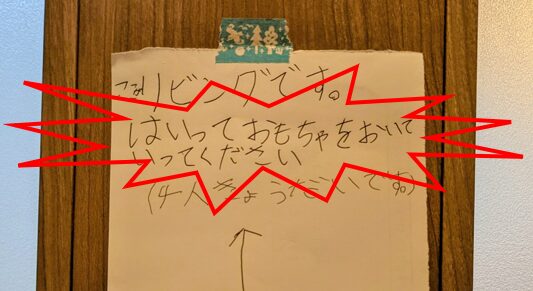 リビングです。
はいっておもちゃをおいて
いってください
(4人きょうだいです。)